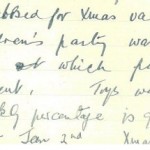 for Xmas va
ren's party wa
at which pa
ent. Toys w
percentage is g
Jan 2nd Xma